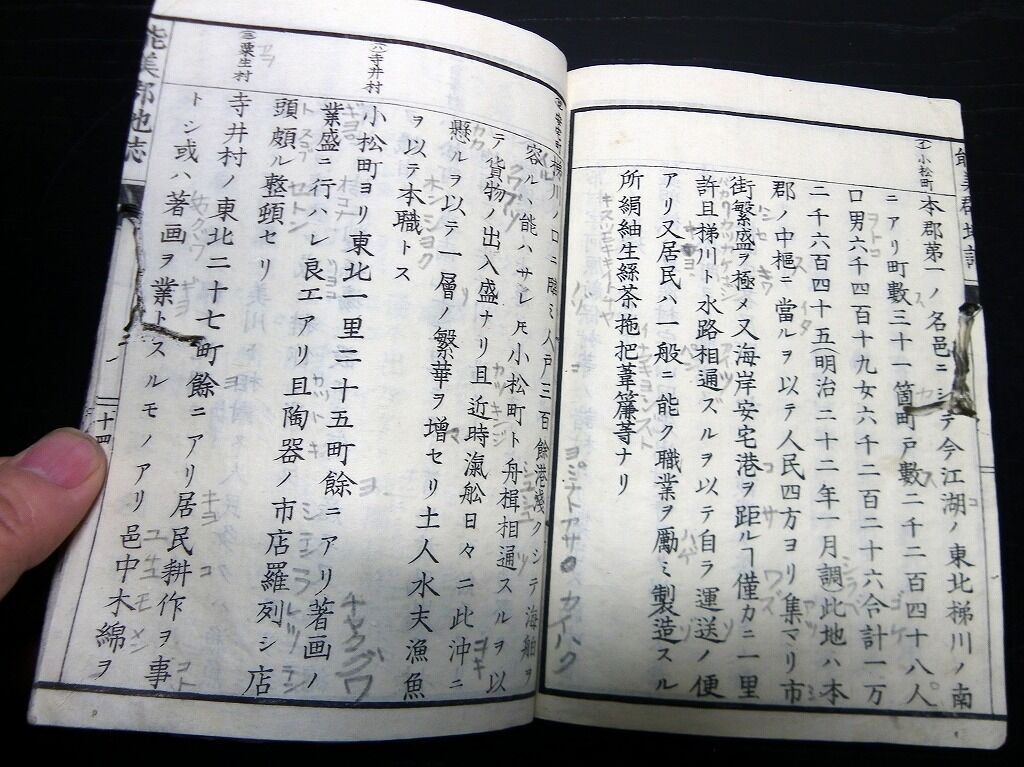 能美郡地誌
小松町
本郡第一ノ名邑ニシテ今江湖ノ東北梯川ノ南
ニアリ町數三十一箇町戸數二千二百四十八人
口男六千四百十九女六千二百二十六合計一万
二千六百四十五(明治二十二年一月調)此地ハ本
郡ノ中樞ニ當ルヲ以テ人民四方ヨリ集マリ市
街繁盛ヲ極メ又海岸安宅港ヲ距ルヿ僅カニ一里
許且梯川ト水路相通スルヲ以テ自ラ運送ノ便
アリ又居民ハ一般ニ能ク職業ヲ勵ミ製造スル
所絹紬生絲茶拖把葦簾䓁ナリ
安宅町
梯川ノ口ニ臨ミ人戸三百餘港淺クシテ海舶ヲ
容ルヽ能ハサレ𪜈小松町ト舟楫相通スルヲ以
テ貨物ノ出入盛ナリ且近時滊舩日々ニ此沖ニ
懸ルヲ以テ一層ノ繁華ヲ增セリ土人水夫漁魚
ヲ以テ本職トス
寺井村
小松町ヨリ東北一里二十五町餘ニアリ著画ノ
業盛ニ行ハレ良工アリ且陶器ノ市店羅列シ店
頭頗ル整頓セリ
粟生村
寺井村ノ東北二十七町餘ニアリ居民耕作ヲ事
トシ或ハ著画ヲ業トスルモノアリ邑中木綿ヲ
能美郡地志
十四